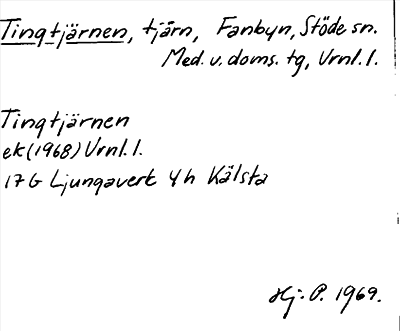 Tingtjärnen, tjärn, Fanbyn, Stöde sn.
Med. v. doms. tg, Vrnl. l.
Tingtjärnen
ek (1968) Vrnl. l.
17 G Ljungaverk 4 h Kälsta
Hj. P. 1969.